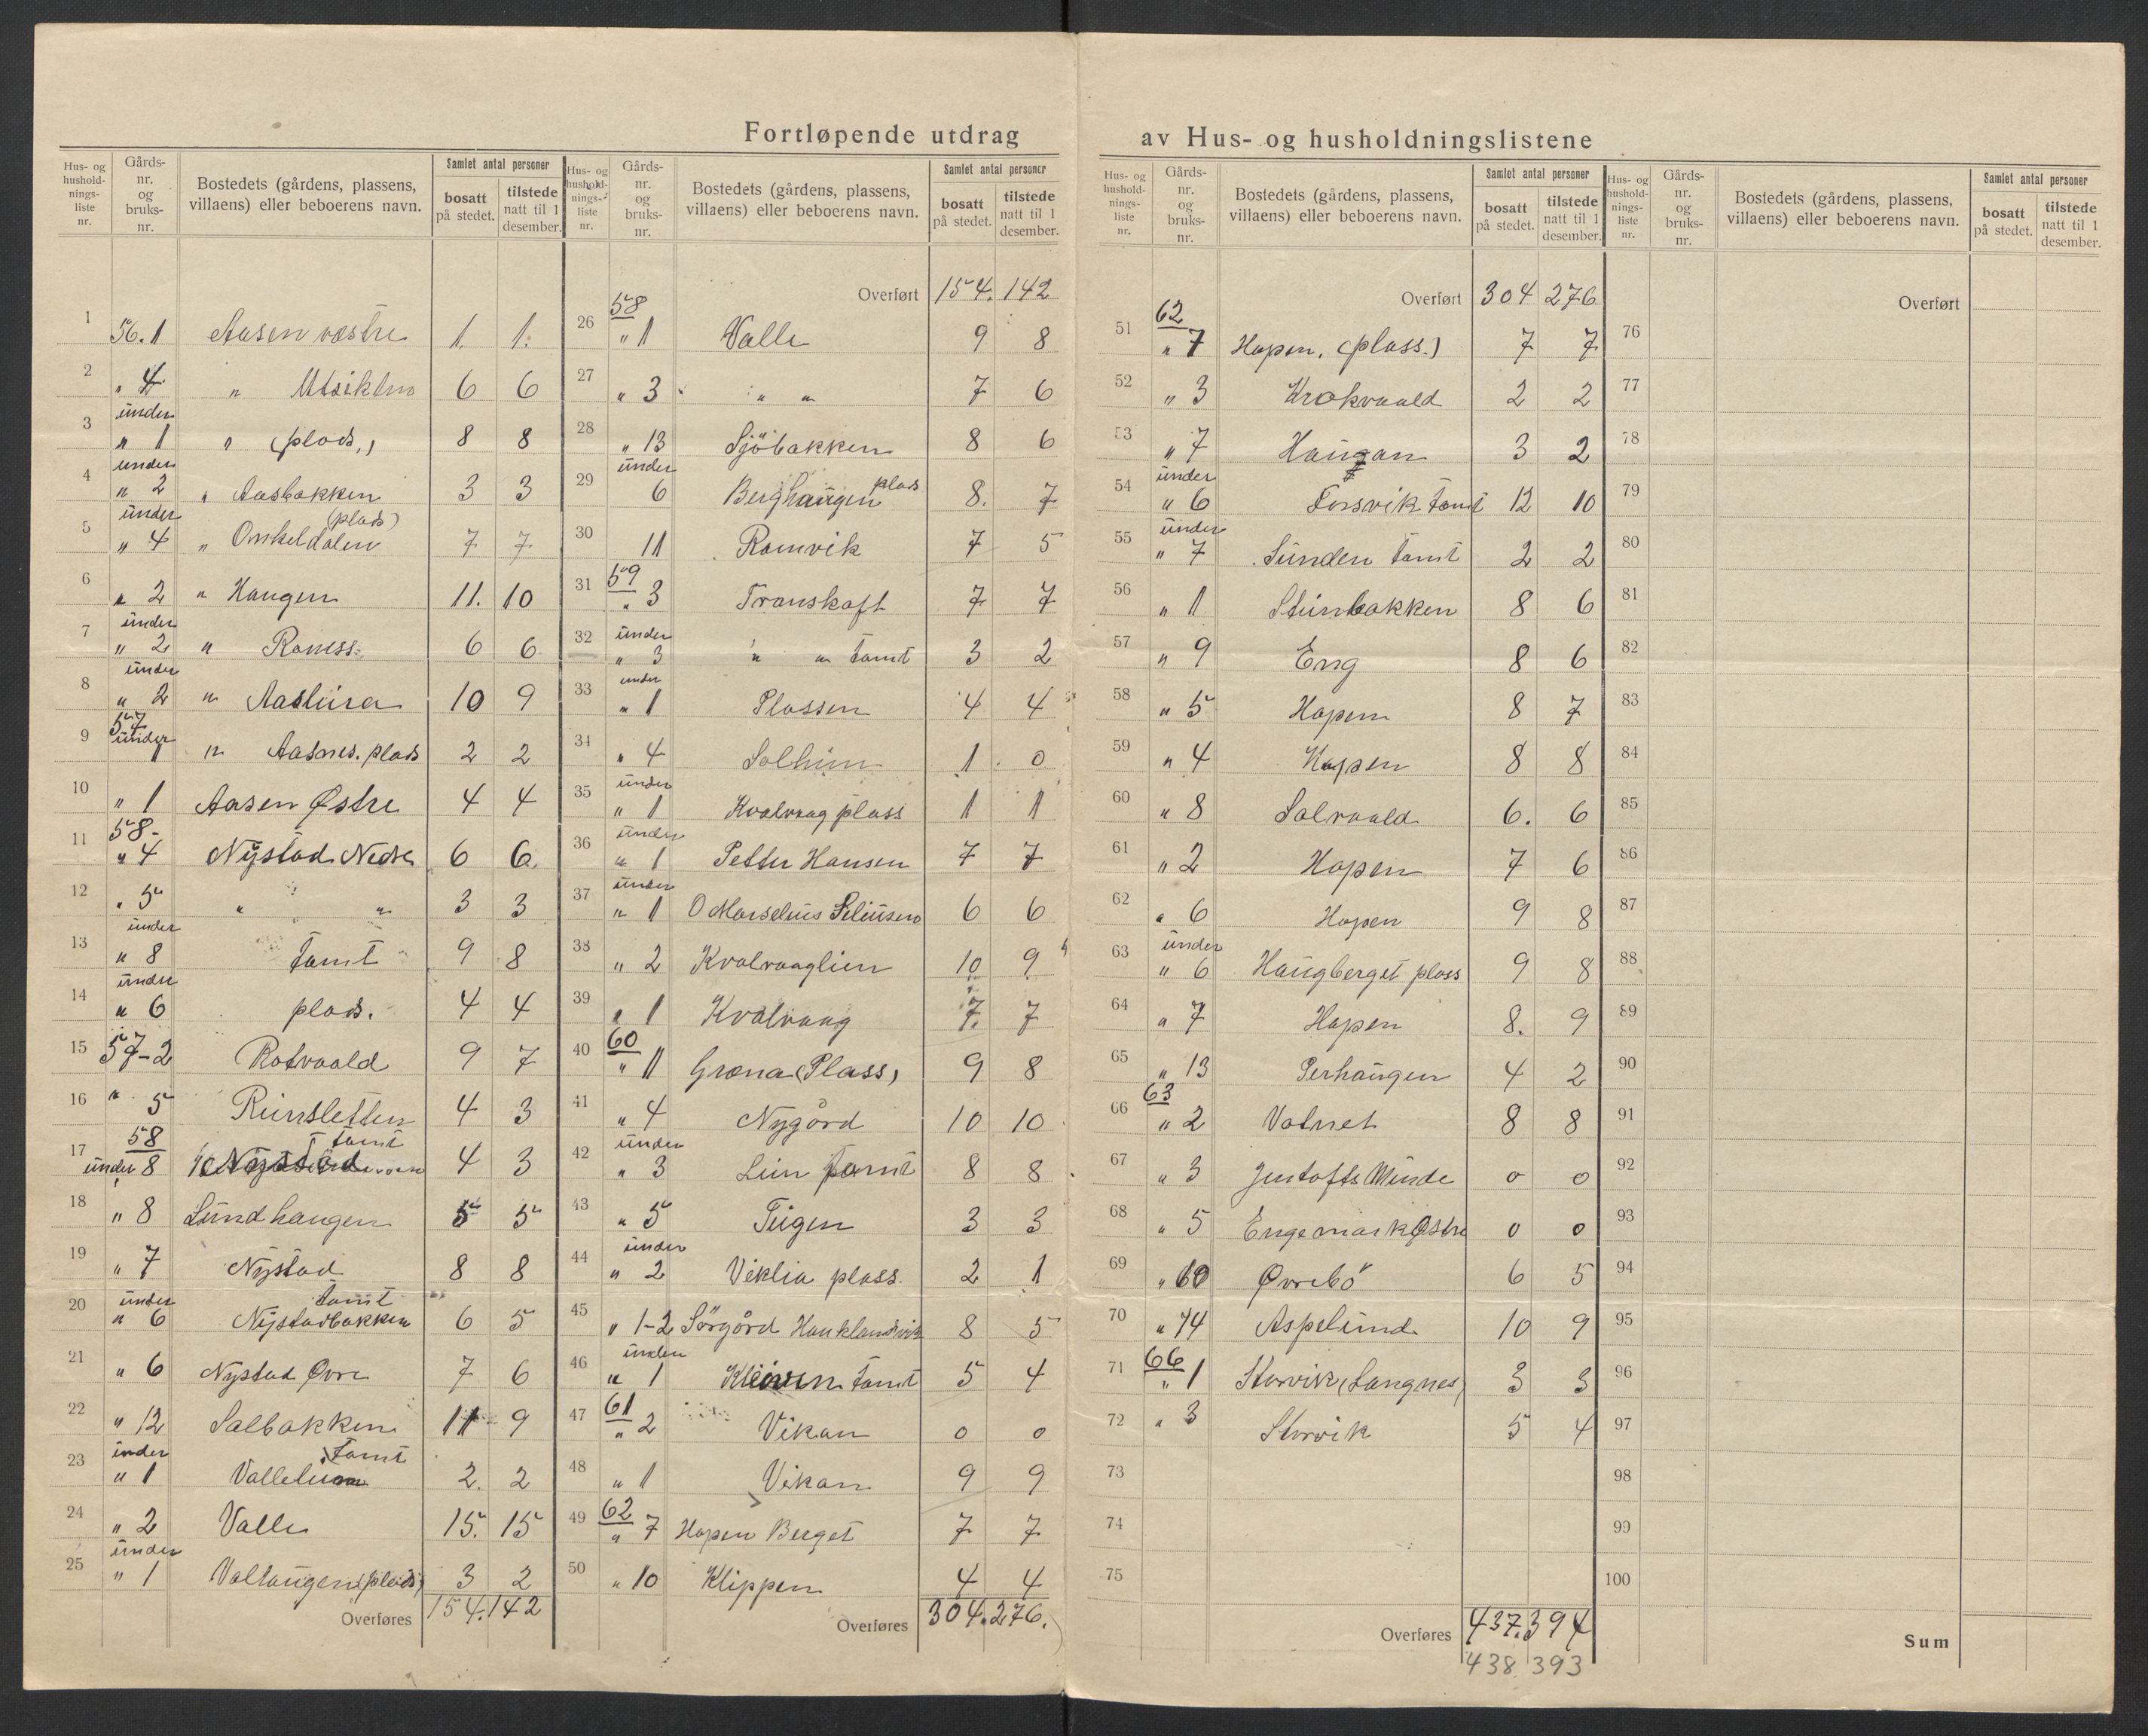 Fortløpende utdrag av Hus- og husholdningslistene
Hus- og husholdnings-liste nr. | Gårds-nr. og bruks-nr. | Bostedets (gårdens, plassens, villaens) eller beboerens navn. | Samlet antal personer | bosatt på stedet. | tilstede natt til 1 desember.
1 56.1 Aasen vøstre 1. 1.
2 „ 4 „ Utsikten 6 6
3 under „ 1 „ (plads,) 8 8
4 under „ 2 „ Aasbakken 3 3
5 under „ 4 „ Onkeldalen (plads) 7 7
6 „ 2 „ Haugen 11. 10
7 under „ 2 „ 6 6
8 under „ 2 „ 10 9
9 57 under 1 „ Aasnes. plads 2 2
10 „ 1 Aasen Østre 4 4
11 58- „ 4 Nÿstad Nedre 6 6.
12 „ 5 „ „ 3 3
13 under „ 8 tomt 9 8
14 under „ 6 plads. 4 4
15 57-2 Rotvaald 9 7
16 „ 5 4 3
17 58 under 8 Nystad tomt 4 3
18 „ 8 Lündhaugen 5 5
19 „ 7 Nÿstad 8 8
20 under „ 6 Nÿstadbakken tomt 6 5
21 „ 6 Nÿstad Øvre 7 6
22 „ 12 Salbakken 11 9
23 under „ 1 tomt 2. 2
24 „ 2 Valle 15. 15
25 under „ 1 (plads) 3 2
Overføres 154. 142
Hus- og husholdnings-liste nr. | Gårds-nr. og bruks-nr. | Bostedets (gårdens, plassens, villaens) eller beboerens navn. | Samlet antal personer | bosatt på stedet. | tilstede natt til 1 desember.
Overført 154. 142
26 58 „ 1 Valle 9 8
27 „ 3 „ „ 7 6
28 „ 13 Sjöbakken 8 6
29 under 6 Berghaugen plads 8. 7
30 11 Ramvik 7 5
31 59 „ 3 Transkaft 7 7
32 under „ 3 „ „ tomt 3 2
33 under „ 1 Plassen 4 4
34 „ 4 Solheim 1 0
35 under „ 1 Kvalvaag plass 1 1
36 under „ 1 Petter Hansen 7 7
37 under „ 1 O Marselius 6 6
38 „ 2 Kvalvaaglien 10 9
39 „ 1 Kvalvaag 7. 7
40 60 „ 11 Grøna (Plass) 9 8
41 „ 4 Nygård 10 10
42 under „ 3 Lien tomt 8 8
43 „ 5 Teigen 3 3
44 under „ 2 Veklia plass. 2 1
45 „ 1-2 Sörgård Hauklandvik 8 5
46 under „ 1 Kleiven tomt 5 4
47 61 „ 2 Vikan 0 0
48 „ 1 Vikan 9 9
49 62 „ 7 Hopen Berget 7 7
50 „ 10 Klippen 4 4
Overføres 304. 276.
Hus- og husholdnings-liste nr. | Gårds-nr. og bruks-nr. | Bostedets (gårdens, plassens, villaens) eller beboerens navn. | Samlet antal personer | bosatt på stedet. | tilstede natt til 1 desember.
Overført 304 276
51 62 „ 7 Hopen, (plass.) 7 7
52 „ 3 Krokvaald 2 2
53 „ 7 Haugan 3 2
54 under „ 6 Forsvik tomt 12 10
55 under „ 7 Sünden tomt 2 2
56 „ 1 Steinbakken 8 6
57 „ 9 Eng 8 6
58 „ 5 Hopen 8 7
59 „ 4 Hopen 8 8
60 „ 8 Salvaald 6. 6
61 „ 2 Hopen 7 6
62 „ 6 Hopen 9 8
63 under „ 6 Haugberget plass 9 8
64 „ 7 Hopen 8. 9
65 „ 13 Perhaugen 4 2
66 63 „ 2 Vatnet 8 8
67 „ 3 Gustafts Minde 0 0
68 „ 5 Engemark Østre 0 0
69 „ 60 Øvrebö 6 5
70 „ 74 Aspelund 10 9
71 66 „ 1 Storvik (Langnes) 3 3
72 „ 3 Storvik 5 4
73
74
75
Overføres 437. 394
438 393
Hus- og husholdnings-liste nr. | Gårds-nr. og bruks-nr. | Bostedets (gårdens, plassens, villaens) eller beboerens navn. | Samlet antal personer | bosatt på stedet. | tilstede natt til 1 desember.
Overført
76
77
78
79
80
81
82
83
84
85
86
87
88
89
90
91
92
93
94
95
96
97
98
99
100
Sum